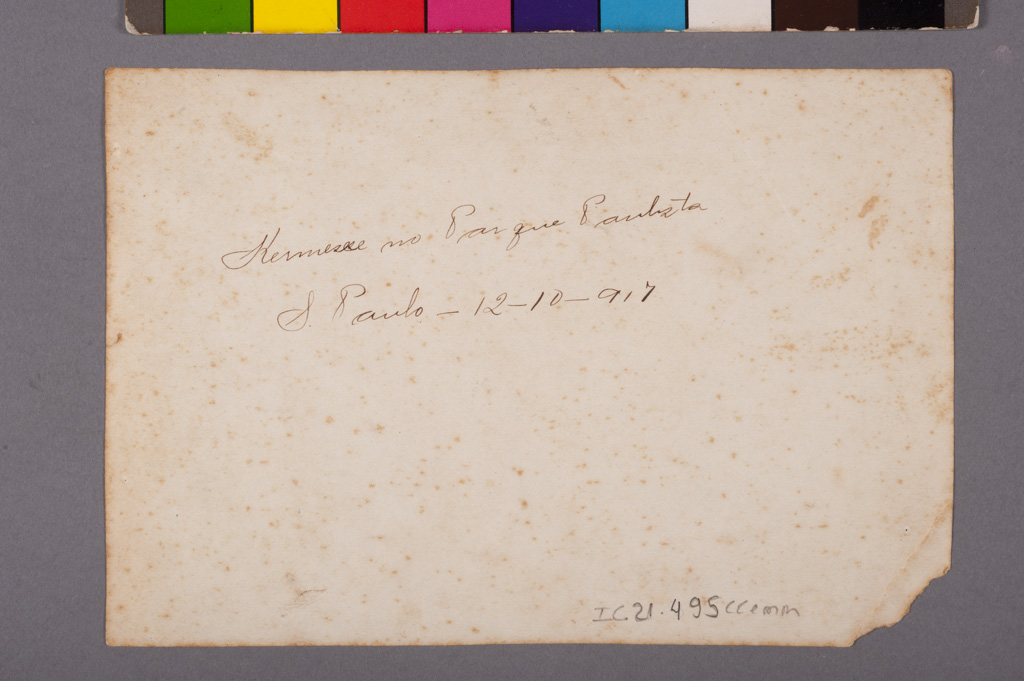 Kermesse no Parque Paulista
S. Paulo - 12-10-917
IC.21.495